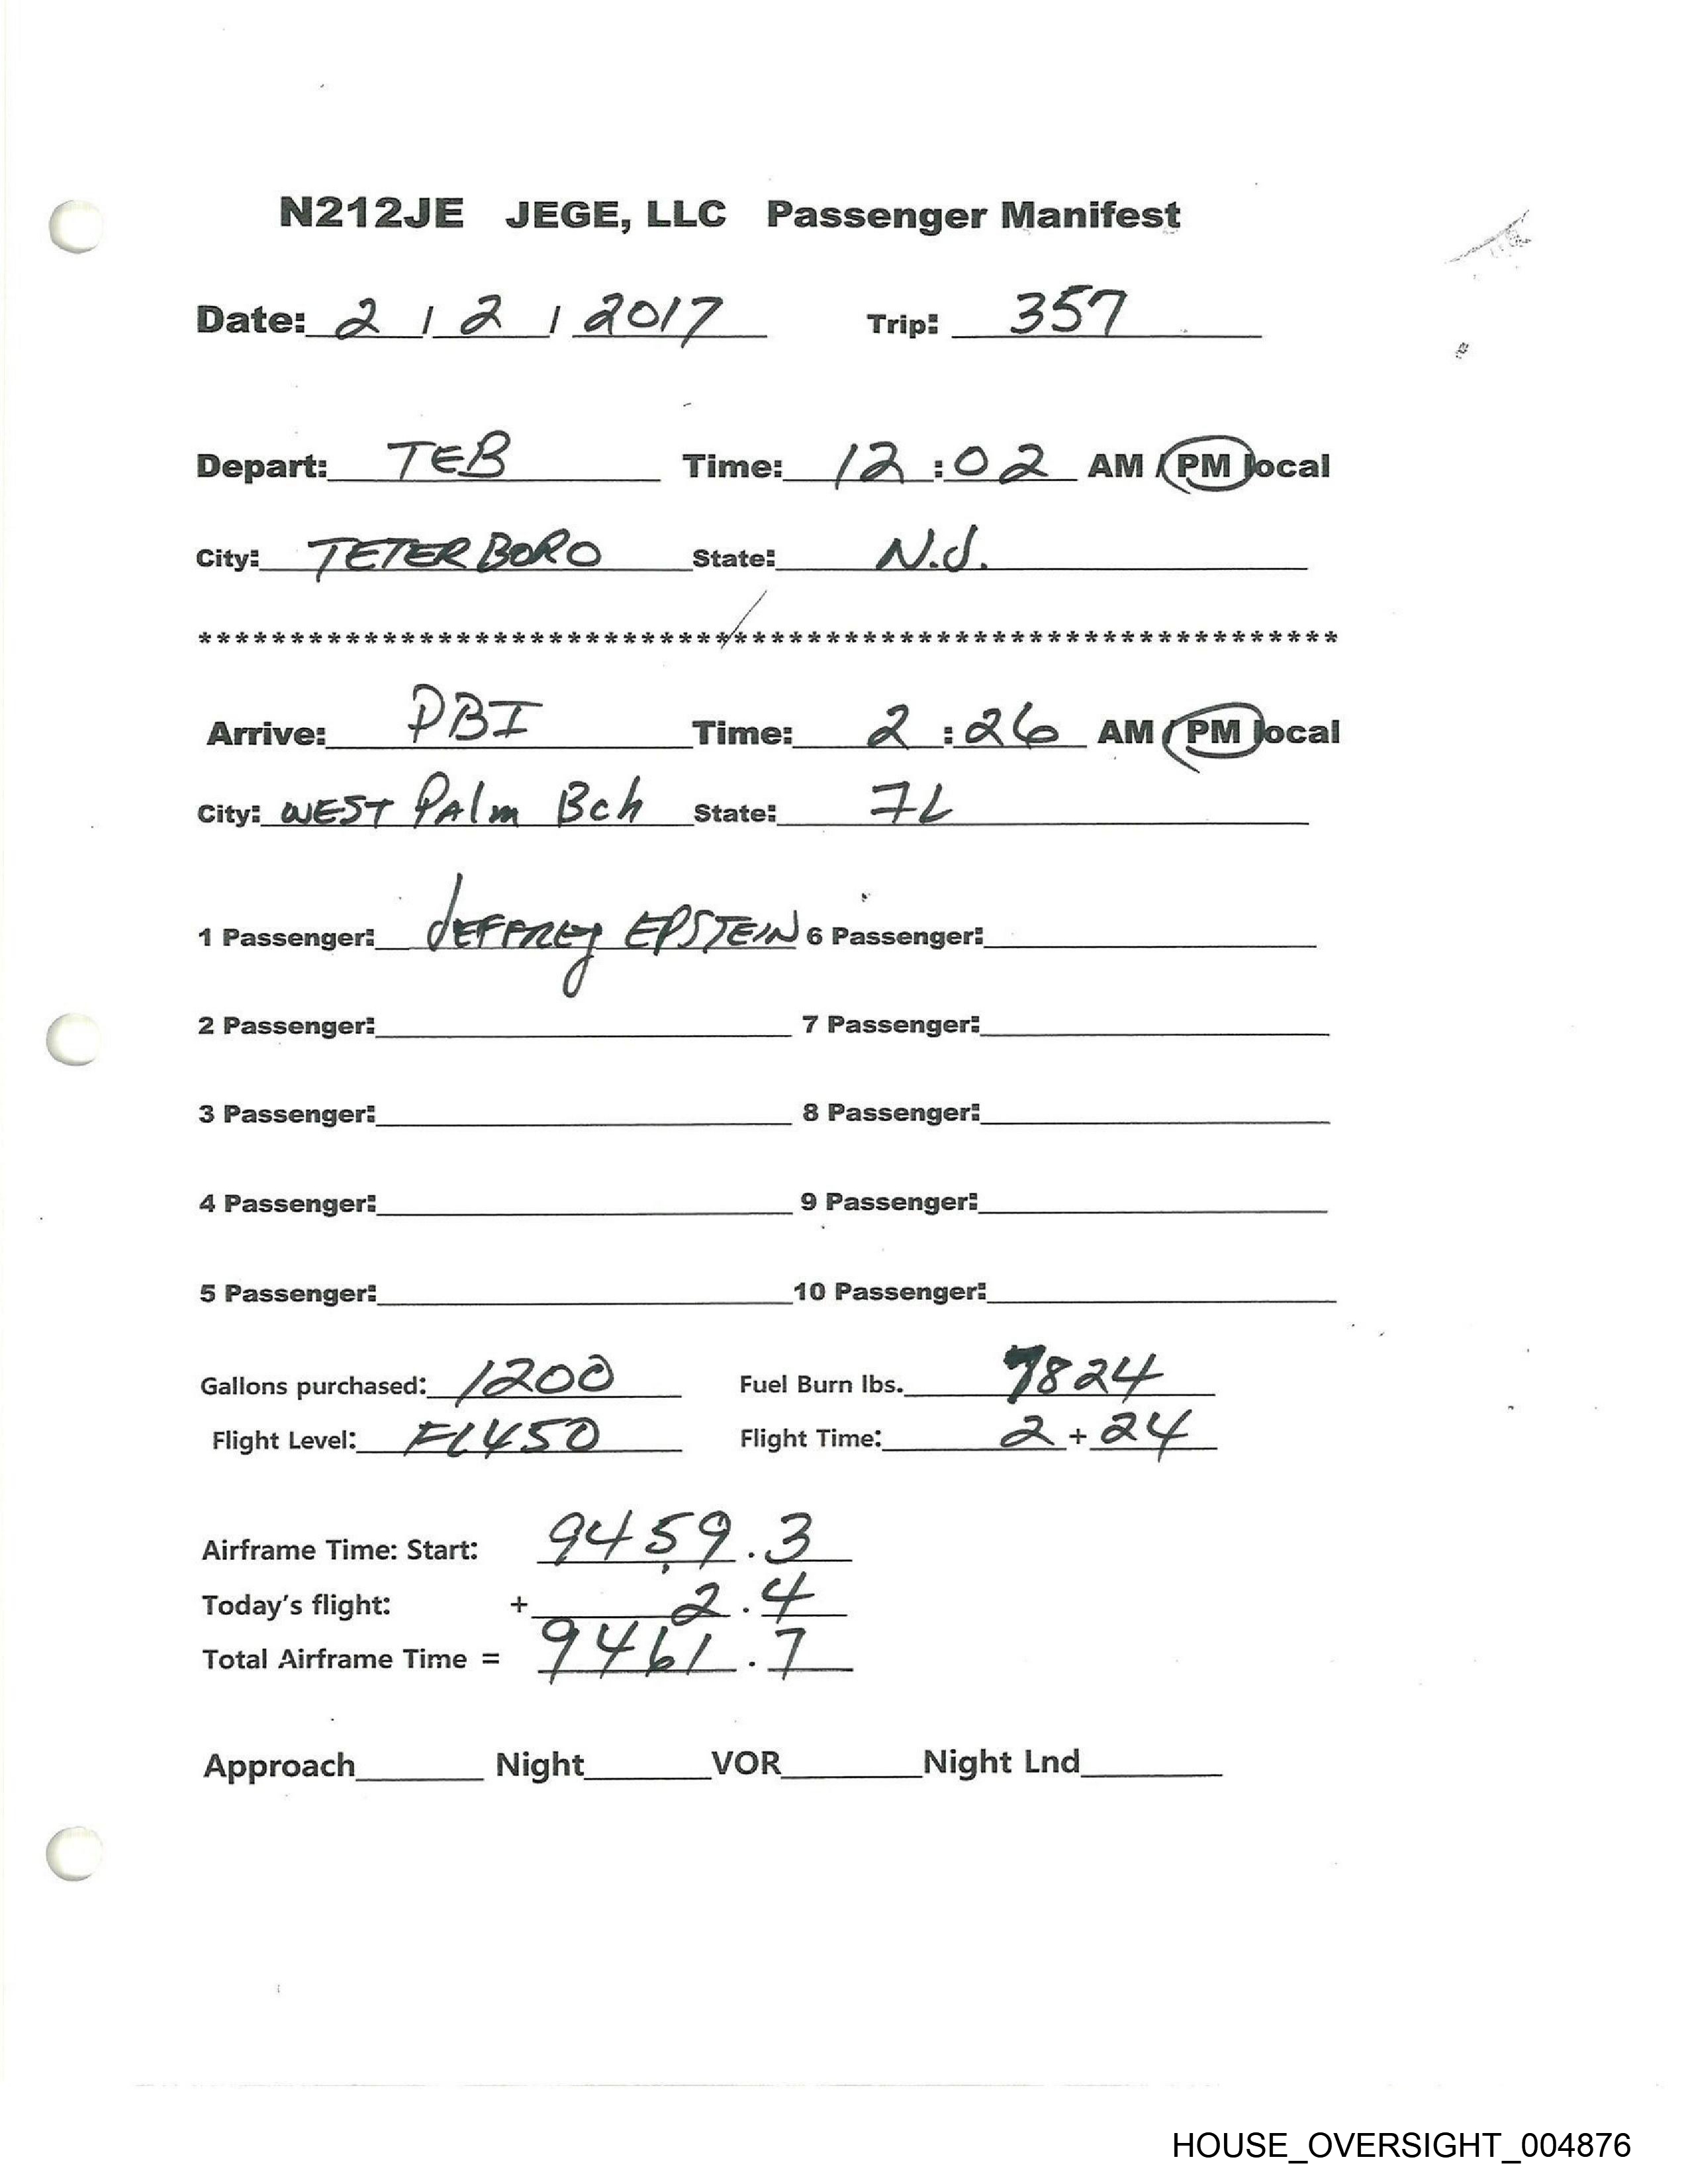 N212JE JEGE, LLC Passenger Manifest
Date: 2 / 2 / 2017 Trip: 357
Depart: TEB Time: 12 : 02 AM / PM local
City: TETERBORO State: N.J.
**************************************************************
Arrive: PBI Time: 2 : 26 AM / PM local
City: WEST PAlm Bch State: FL
1 Passenger: JEFFREy EPSTEIN 6 Passenger:
2 Passenger: 7 Passenger:
3 Passenger: 8 Passenger:
4 Passenger: 9 Passenger:
5 Passenger: 10 Passenger:
Gallons purchased: 1200 Fuel Burn lbs. 7824
Flight Level: FL450 Flight Time: 2 + 24
Airframe Time: Start: 9459.3
Today's flight: + 2.4
Total Airframe Time = 9461.7
Approach Night VOR Night Lnd
HOUSE_OVERSIGHT_004876